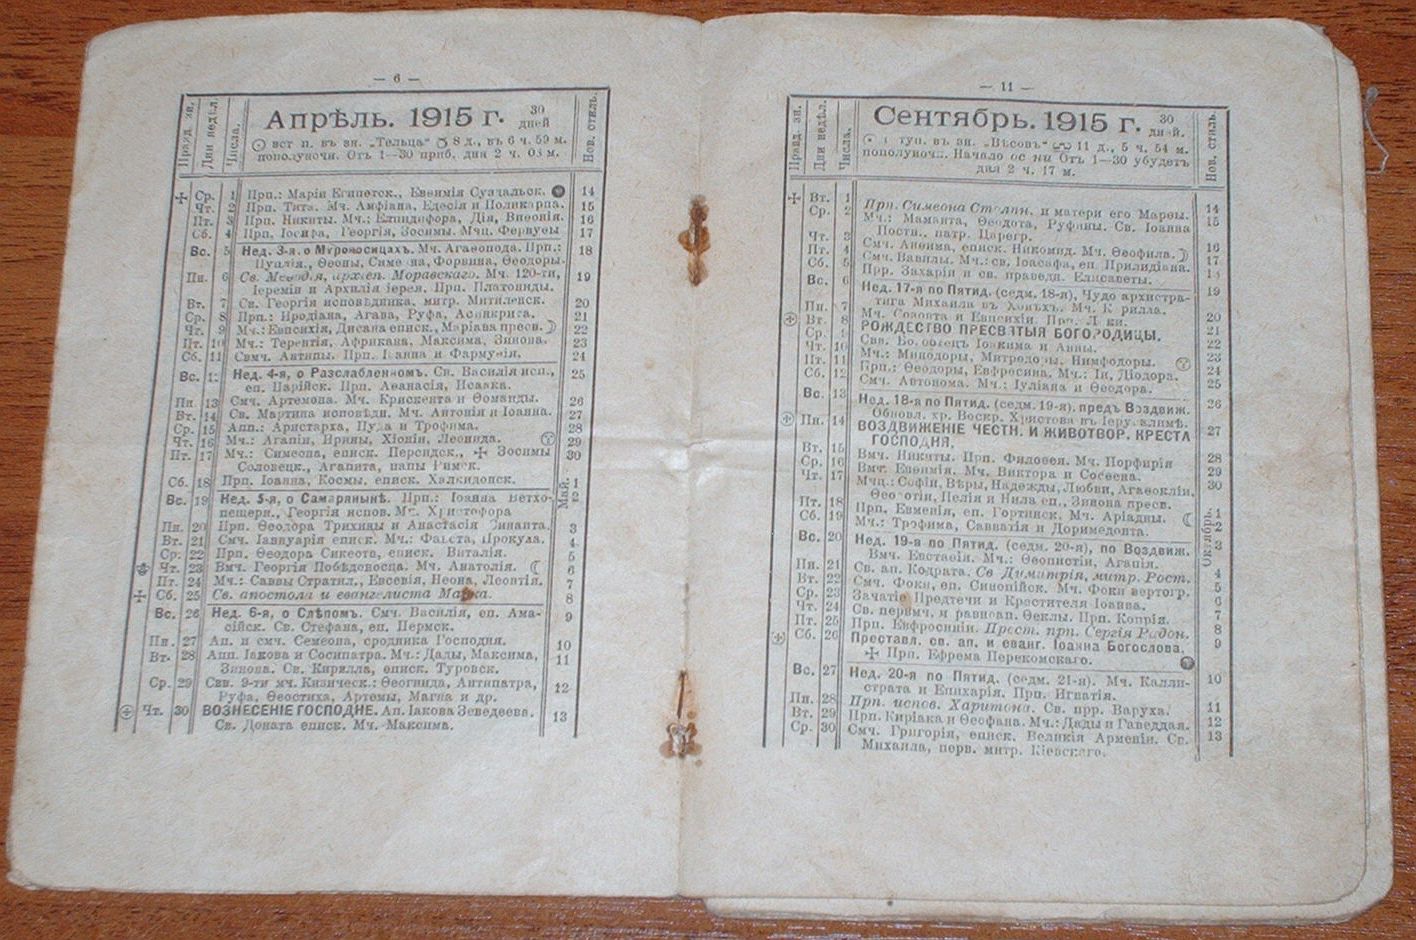 — 6 —
Правд. зн.
Дни недѣл.
Числа.
Апрѣль. 1915 г. 30 дней
Нов. стиль.
вст п. въ зн. „Тельца“ 8 д., въ 6 ч. 59 м.
пополуночи. Отъ 1—30 приб. дня 2 ч. 03 м.
Ср. 1 Прп.: Маріи Египетск., Евѳимія Суздальск. 14
Чт. 2 Прп. Тита. Мч. Амфіана, Едесія и Поликарпа. 15
Пт. 3 Прп. Никиты. Мч.: Елпидифора, Дія, Виѳонія. 16
Сб. 4 Прп. Іосифа, Георгія, Зосимы. Мчц. Фервуѳы 17
Вс. 5 Нед. 3-я о Мѵроносицахъ. Мч. Агаѳопода. Прп.: 18
Пуплія., Ѳеоны, Симеона, Форвина, Ѳеодоры.
Пн. 6 Св. Меѳодія, архіеп. Моравскаго. Мч. 120-ти, 19
Іереміи и Архилія іерея. Прп. Платониды.
Вт. 7 Св. Георгія исповѣдника, митр. Митиленск. 20
Ср. 8 Прп.: Иродіана, Агава, Руфа, Асинкрита. 21
Чт. 9 Мч.: Евпсихія, Дисана еписк., Маріава пресв. 22
Пт. 10 Мч.: Терентія, Африкана, Максима, Зинона. 23
Сб. 11 Свмч. Антипы. Прп. Іоанна и Фармуѳія. 24
Вс. 12 Нед. 4-я, о Разслабленномъ. Св. Василія исп., 25
еп. Парійск. Прп. Аѳанасія, Исаака.
Пн. 13 Смч. Артемона. Мч. Крискента и Ѳомаиды. 26
Вт. 14 Св. Мартина исповѣдн. Мч. Антонія и Іоанна. 27
Ср. 15 Апп.: Аристарха, Пуда и Трофима. 28
Чт. 16 Мч.: Агапіи, Ирины, Хіоніи, Леонида. 29
Пт. 17 Мч.: Симеона, еписк. Персидск., Зосимы 30
Соловецк., Агапита, папы Римск.
Сб. 18 Прп. Іоанна, Космы, еписк. Халкидонск. Май. 1
Вс. 19 Нед. 5-я, о Самарянынѣ. Прп.: Іоанна Ветхо- 2
пещерн., Георгія испов. Мч. Христофора
Пн. 20 Прп. Ѳеодора Трихины и Анастасія Синаита. 3
Вт. 21 Смч. Іаннуарія еписк. Мч.: Фавста, Прокула. 4
Ср. 22 Прп. Ѳеодора Сикеота, еписк. Виталія. 5
Чт. 23 Вмч. Георгія Побѣдоносца. Мч. Анатолія. 6
Пт. 24 Мч.: Саввы Стратил., Евсевія, Неона, Леонтія. 7
Сб. 25 Св. апостола и евангелиста Марка. 8
Вс. 26 Нед. 6-я, о Слѣпомъ. Смч. Василія, еп. Ама- 9
сійск. Св. Стефана, еп. Пермск.
Пн. 27 Ап. и смч. Семеона, сродника Господня. 10
Вт. 28 Апп. Іакова и Сосипатра. Мч.: Дады, Максима, 11
Зинова. Св. Кирилла, еписк. Туровск.
Ср. 29 Свв. 9-ти мч. Кизическ.: Ѳеогнида, Антипатра, 12
Руфа, Ѳеостиха, Артемы, Магна и др.
Чт. 30 ВОЗНЕСЕНІЕ ГОСПОДНЕ. Ап. Іакова Зеведеева. 13
Св. Доната еписк. Мч. Максима.
— 11 —
Правд. зн.
Дни недѣл.
Числа.
Сентябрь. 1915 г. 30 дней.
Нов. стиль.
туп. въ зн. „Вѣсовъ“ 11 д., 5 ч. 54 м.
пополуночи. Начало осени Отъ 1—30 убудетъ
дня 2 ч. 17 м.
Вт. 1 Прп. Симеона Столпн. и матери его Марѳы. 14
Ср. 2 Мч.: Маманта, Ѳеодота, Руфины. Св. Іоанна 15
Постн., патр. Царегр.
Чт. 3 Смч. Анѳима, еписк. Никомид. Мч. Ѳеофила. 16
Пт. 4 Смч. Вавилы. Мч.: св. Іоасафа, еп. Прилидіана. 17
Сб. 5 Прр. Захаріи и св. праведн. Елисаветы. 18
Вс. 6 Нед. 17-я по Пятид. (седм. 18-я), Чудо архистра- 19
тига Михаила въ Хонѣхъ. Мч. Кирилла.
Пн. 7 Мч. Созонта и Евпсихія. Прп. Луки. 20
Вт. 8 РОЖДЕСТВО ПРЕСВЯТЫЯ БОГОРОДИЦЫ. 21
Ср. 9 Свв. Богоотецъ Іоакима и Анны. 22
Чт. 10 Мч.: Минодоры, Митродоры, Нимфодоры. 23
Пт. 11 Прп.: Ѳеодоры, Евфросина, Мч.: Іи, Діодора. 24
Сб. 12 Смч. Автонома. Мч.: Іуліана и Ѳеодора. 25
Вс. 13 Нед. 18-я по Пятид. (седм. 19-я), предъ Воздвиж. 26
Обновл. хр. Воскр. Христова въ Іерусалимѣ.
Пн. 14 ВОЗДВИЖЕНІЕ ЧЕСТН. И ЖИВОТВОР. КРЕСТА 27
ГОСПОДНЯ.
Вт. 15 Вмч. Никиты. Прп. Филоѳея. Мч. Порфирія 28
Ср. 16 Вмч. Евѳимія. Мч. Виктора и Сосѳена. 29
Чт. 17 Мчц.: Софіи, Вѣры, Надежды, Любви, Агаѳокліи, 30
Ѳеодотіи, Пелія и Нила еп., Зинона пресв.
Пт. 18 Прп. Евменія, еп. Гортинск. Мч. Аріадны. Октябрь. 1
Сб. 19 Мч.: Трофима, Савватія и Доримедонта. 2
Вс. 20 Нед. 19-я по Пятид. (седм. 20-я), по Воздвиж. 3
Вмч. Евстаѳія. Мч.: Ѳеопистіи, Агапія.
Пн. 21 Св. ап. Кодрата. Св Димитрія, митр. Рост. 4
Вт. 22 Смч. Фоки, еп. Синопійск. Мч. Фоки вертогр. 5
Ср. 23 Зачатіе Предтечи и Крестителя Іоанна. 6
Чт. 24 Св. первмч. и равноап. Ѳеклы. Прп. Копрія. 7
Пт. 25 Прп. Евфросиніи. Прест. прп. Сергія Радон. 8
Сб. 26 Преставл. св. ап. и еванг. Іоанна Богослова. 9
Прп. Ефрема Перекомскаго.
Вс. 27 Нед. 20-я по Пятид. (седм. 21-я). Мч. Калли- 10
страта и Епихарія. Прп. Игнатія.
Пн. 28 Прп. испов. Харитона. Св. прр. Варуха. 11
Вт. 29 Прп. Киріака и Ѳеофана. Мч.: Дады и Гаведдая. 12
Ср. 30 Смч. Григорія, еписк. Великія Арменіи. Св. 13
Михаила, перв. митр. Кіевскаго.